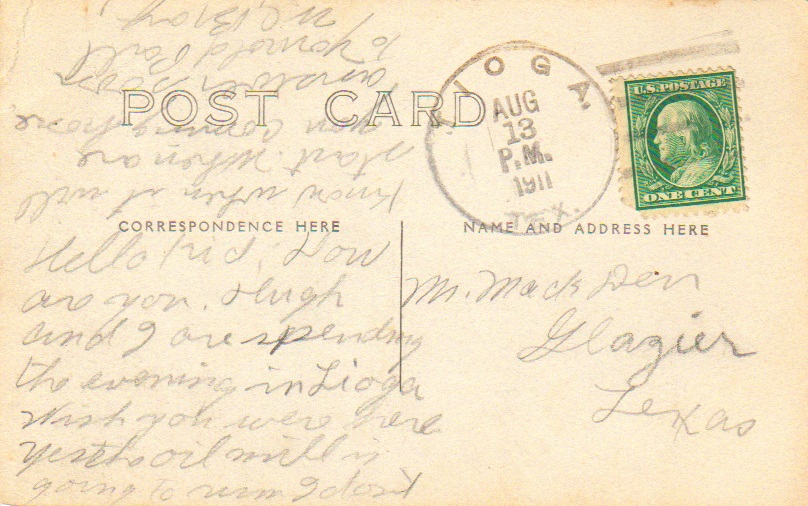 POST CARD
TIOGA
AUG
13
P.M.
1911
TEX.
U.S. POSTAGE
ONE CENT
CORRESPONDENCE HERE
NAME AND ADDRESS HERE
Hello kid, How
are you. Hugh
and I are spending
the evening in Tioga
Wish you were here
Yes the oil mill is
going to run I don't
know when it will
start. When are
you coming home,
answer soon
to your old Pall
Mr. Mack
Glazier
Texas